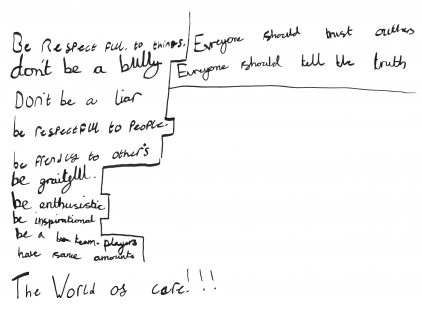 Be Respectful. to things.
don't be a bully
Don't be a liar
be respectful to People.
be frendly to other's
be graitful.
be enthusistic
be inspirational
be a team. players
have same amounts
Everyone should trust outhers
Everyone should tell the truth
The World of care!!!